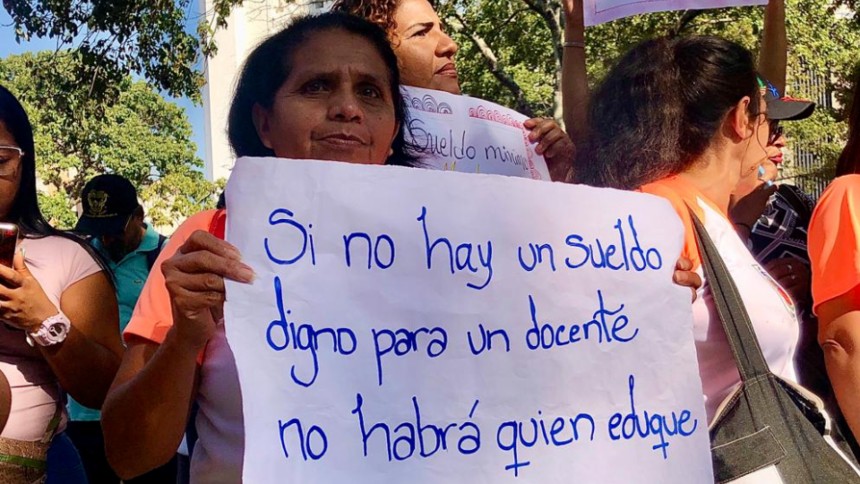 Sueldo mínim
Si no hay un sueldo
digno para un docenté
no habrá quien eduque